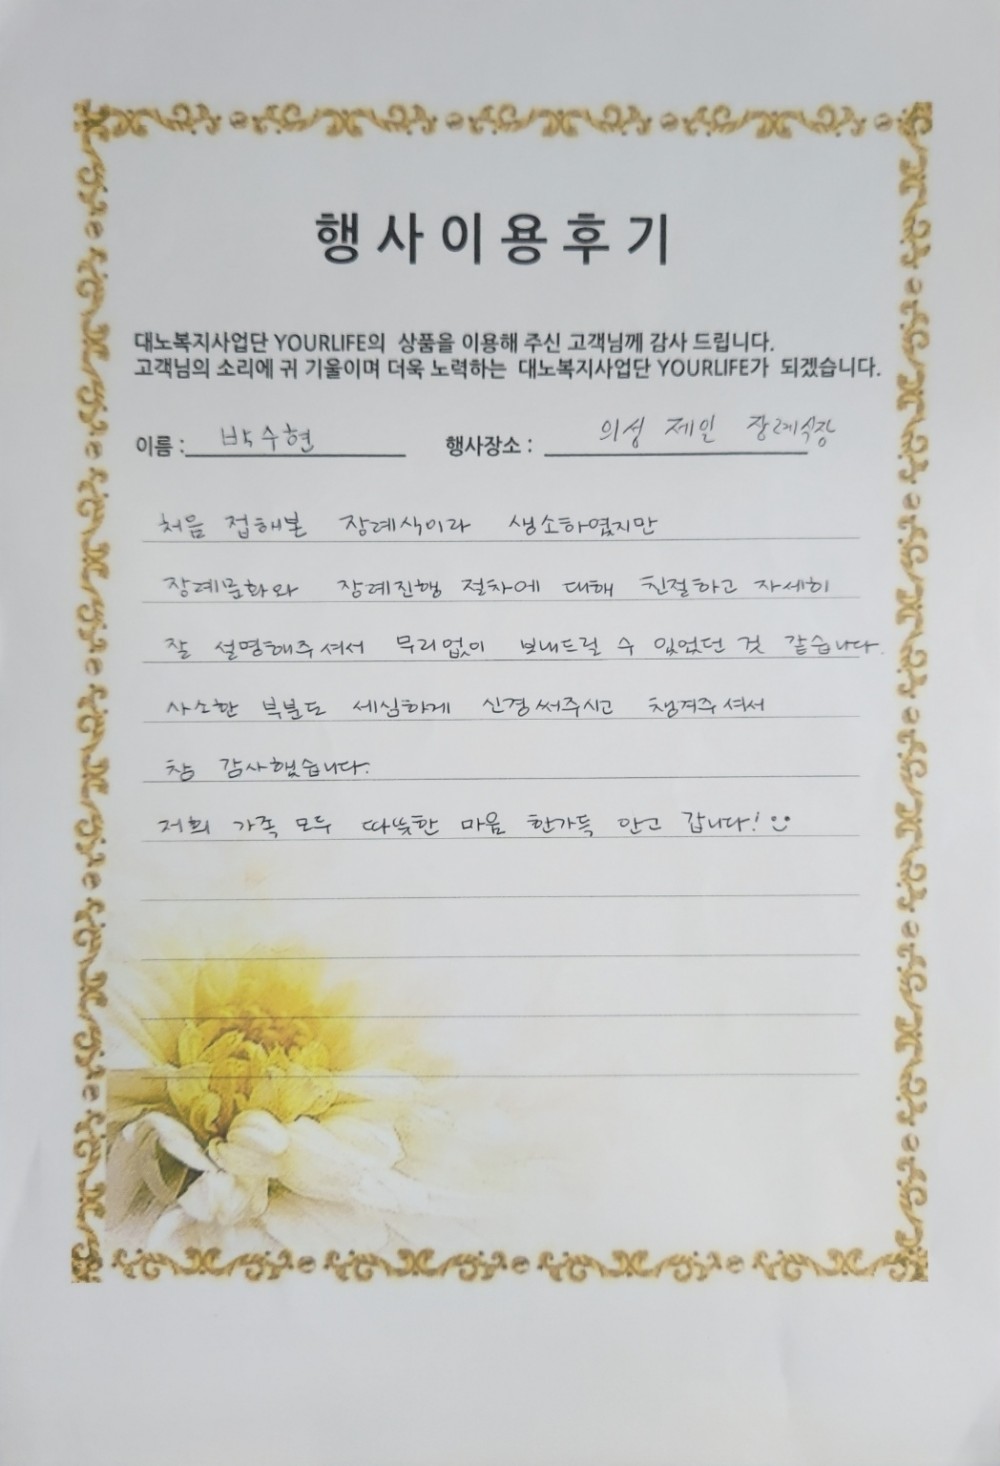 행사이용후기
대노복지사업단 YOURLIFE의 상품을 이용해 주신 고객님께 감사 드립니다.
고객님의 소리에 귀 기울이며 더욱 노력하는 대노복지사업단 YOURLIFE가 되겠습니다.
이름 : 박수현 행사장소 : 의성 제일 장례식장
처음 접해본 장례식이라 생소하였지만
장례문화와 장례진행 절차에 대해 친절하고 자세히
잘 설명해주셔서 무리없이 보내드릴 수 있었던 것 같습니다.
사소한 부분도 세심하게 신경써주시고 챙겨주셔서
참 감사했습니다.
저희 가족 모두 따뜻한 마음 한가득 안고 갑니다! :)